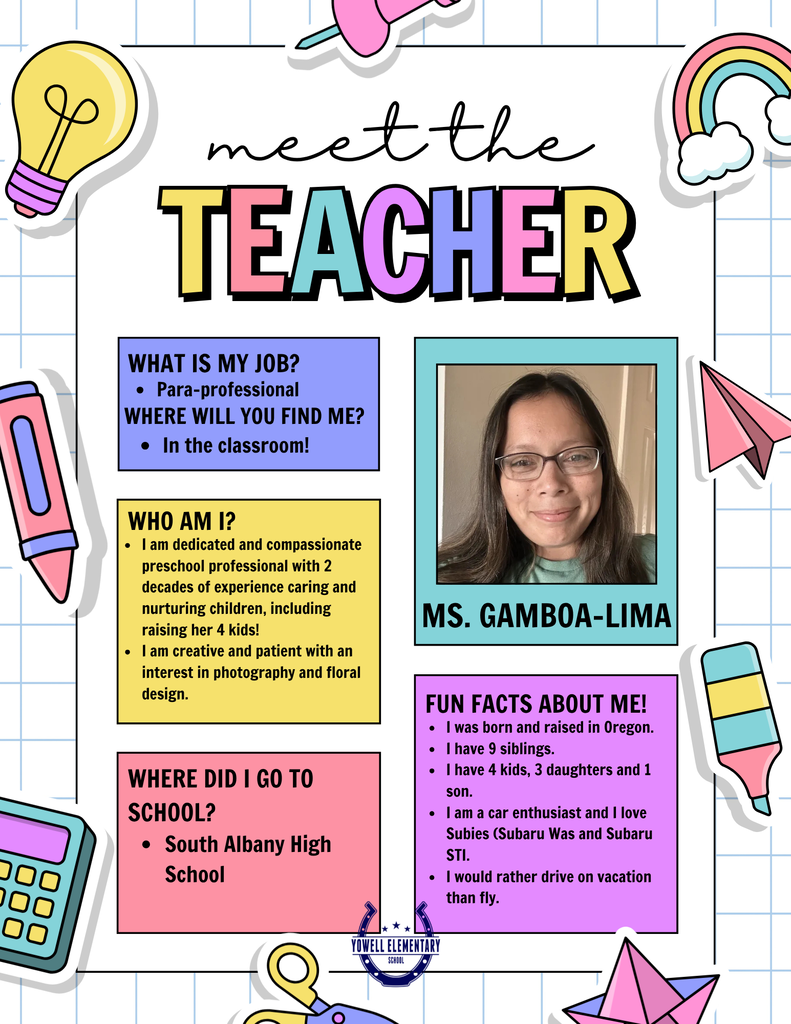 meet the
TEACHER
WHAT IS MY JOB?
• Para-professional
WHERE WILL YOU FIND ME?
• In the classroom!
WHO AM I?
• I am dedicated and compassionate
preschool professional with 2
decades of experience caring and
nurturing children, including
raising her 4 kids!
• I am creative and patient with an
interest in photography and floral
design.
WHERE DID I GO TO
SCHOOL?
• South Albany High
School
MS. GAMBOA-LIMA
FUN FACTS ABOUT ME!
• I was born and raised in Oregon.
• I have 9 siblings.
• I have 4 kids, 3 daughters and 1
son.
• I am a car enthusiast and I love
Subies (Subaru Was and Subaru
STI.
• I would rather drive on vacation
than fly.
YOWELL ELEMENTARY
SCHOOL